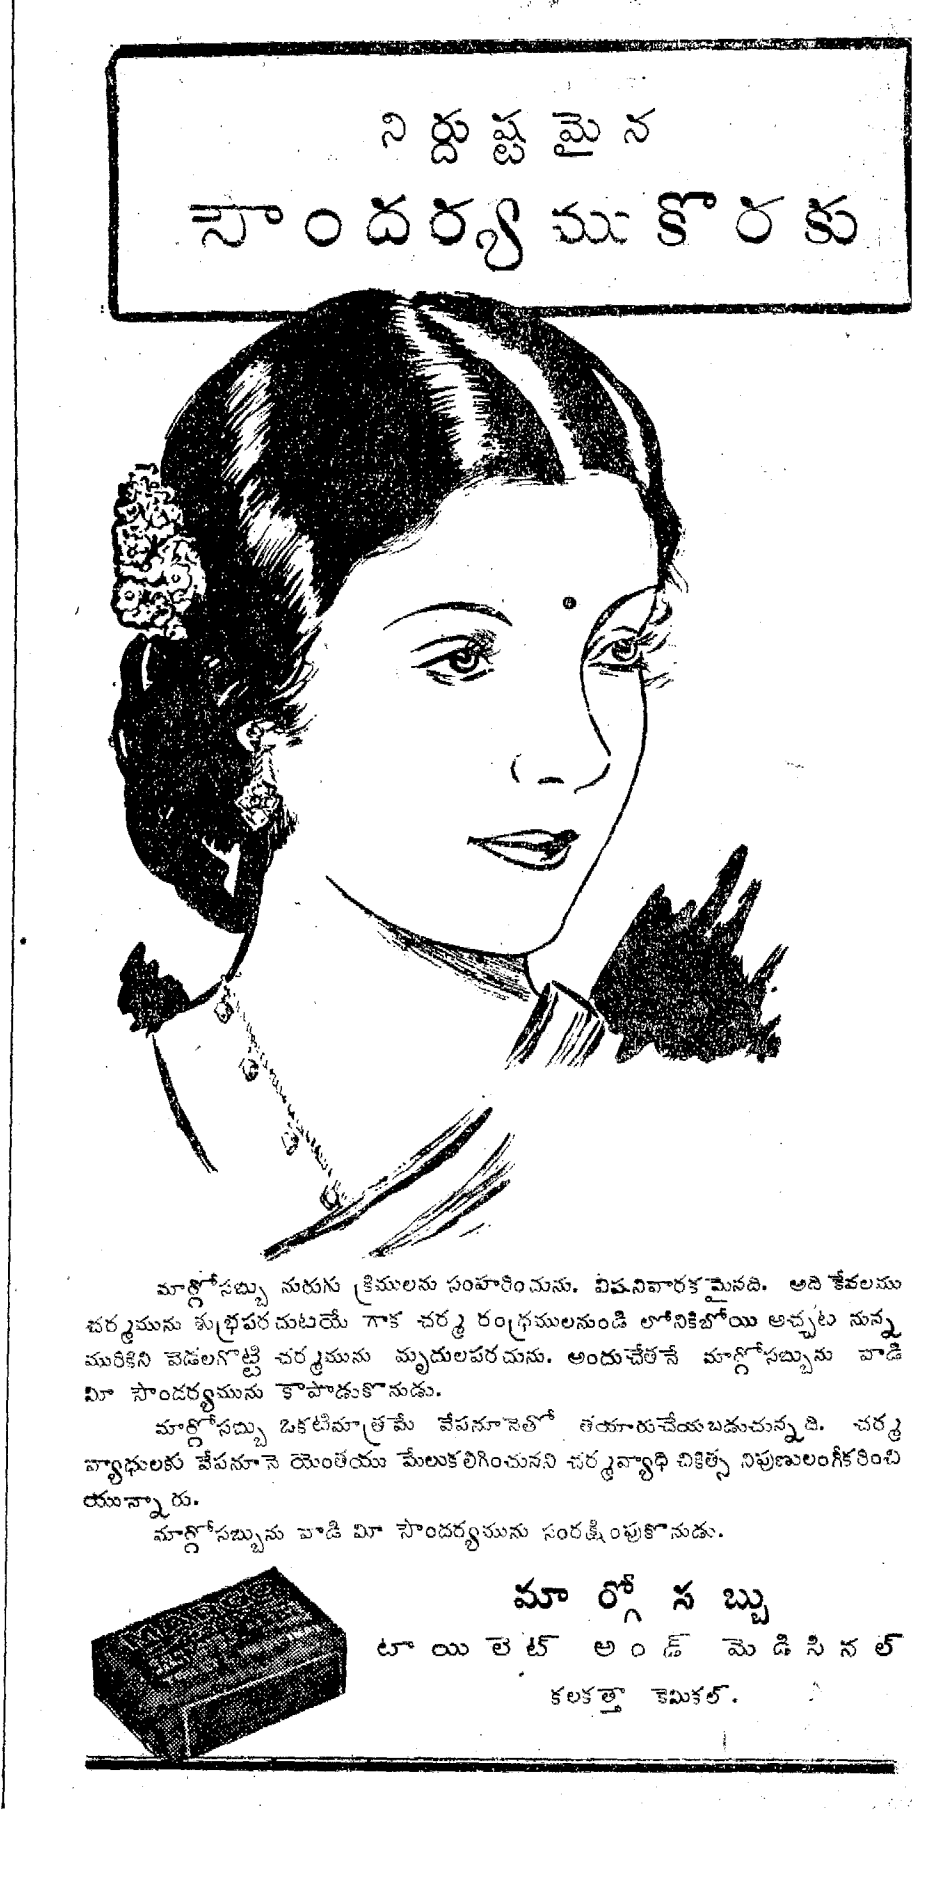 నిర్దుష్టమైన
సౌందర్యముకొరకు
మార్గోసబ్బు నురుగు క్రిములను సంహరించును. విషనివారకమైనది. అది కేవలము
చర్మమును శుభ్రపరచుటయే గాక చర్మ రంధ్రములనుండి లోనికిబోయి అచ్చట నున్న
మురికిని వెడలగొట్టి చర్మమును మృదులపరచును. అందుచేతనే మార్గోసబ్బును వాడి
మీ సౌందర్యమును కాపాడుకొనుడు.
మార్గోసబ్బు ఒకటిమాత్రమే వేపనూనెతో తయారుచేయబడుచున్నది. చర్మ
వ్యాధులకు వేపనూనె యెంతయు మేలుకలిగించునని చర్మవ్యాధి చికిత్స నిపుణులంగీకరించి
యున్నారు.
మార్గోసబ్బును వాడి మీ సౌందర్యమును సంరక్షింపుకొనుడు.
మార్గోసబ్బు
టాయిలెట్ అండ్ మెడిసినల్
కలకత్తా కెమికల్.
MARGO